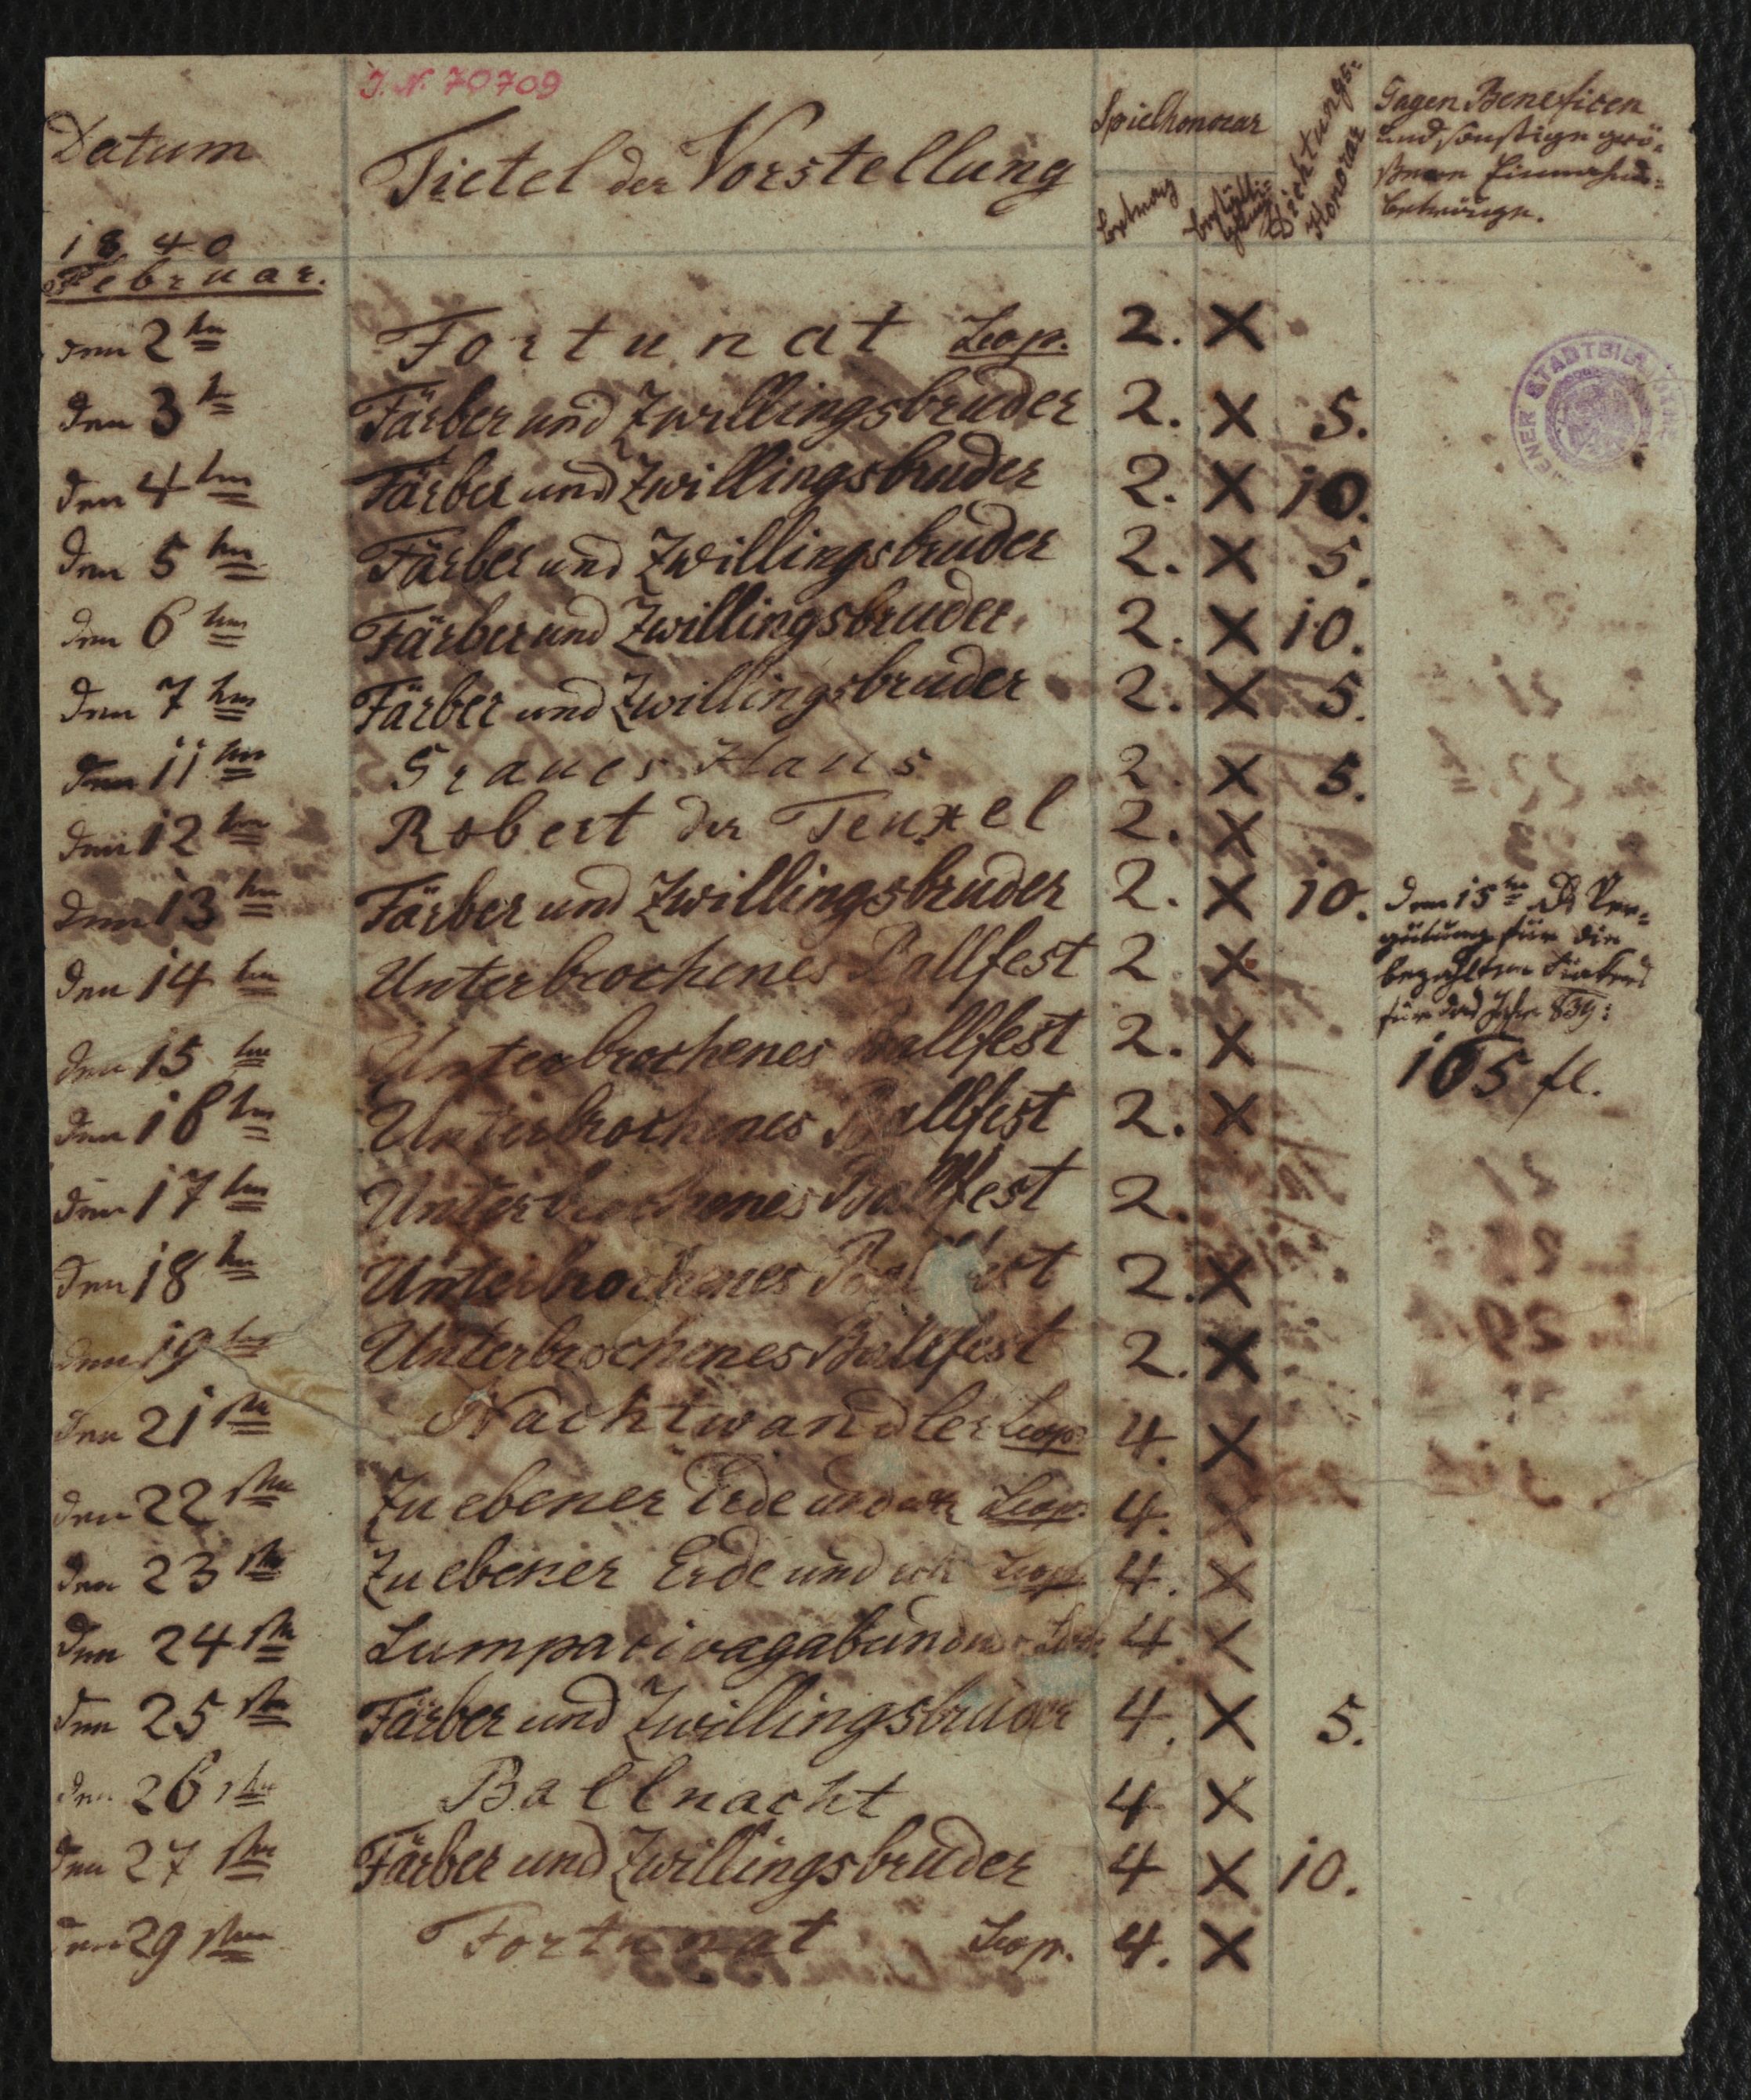 J. N. 70709
Datum
Tietel der Vorstellung
Spielhonorar
Betrag
Dichtungs=
Honorar
Gagen Beneficen
und sonstige grö-
ßeren Einnahms=
beträge.
1840
Februar.
den 2tn Fortunat Leop. 2. X
den 3tn Färber und Zwillingsbruder 2. X 5.
den 4ten Färber und Zwillingsbruder 2. X 10.
den 5ten Färber und Zwillingsbruder 2. X 5.
den 6ten Färber und Zwillingsbruder. 2. X 10.
den 7ten Färber und Zwillingsbruder 2. X 5.
den 11ten Graues Haus 2. X 5.
den 12ten Robert der Teuxel 2. X
den 13ten Färber und Zwillingsbruder 2. X 10.
den 14ten Unterbrochenes Ballfest 2 X
den 15ten Unterbrochenes Ballfest 2. X
den 16ten Unterbrochenes Ballfest 2. X
den 17ten Unterbrochenes Ballfest 2.
den 18ten Unterbrochenes Ballfest 2. X
den 19ten Unterbrochenes Ballfest 2. X
den 21sten Nachtwandler Leop. 4. X
den 22sten Zu ebener Erde und Leop. 4. X
den 23sten Zu ebener Erde und Leop. 4. X
den 24sten Lumpacivagabundus 4. X
den 25sten Färber und Zwillingsbruder 4. X 5.
den 26sten Ballnacht 4 X
den 27sten Färber und Zwillingsbruder 4 X 10.
den 29sten Fortunat Leop. 4. X
den 15tn Die Ver=
gütung für die
bezahlten Fiakers
für das Jahr 839:
105 fl.